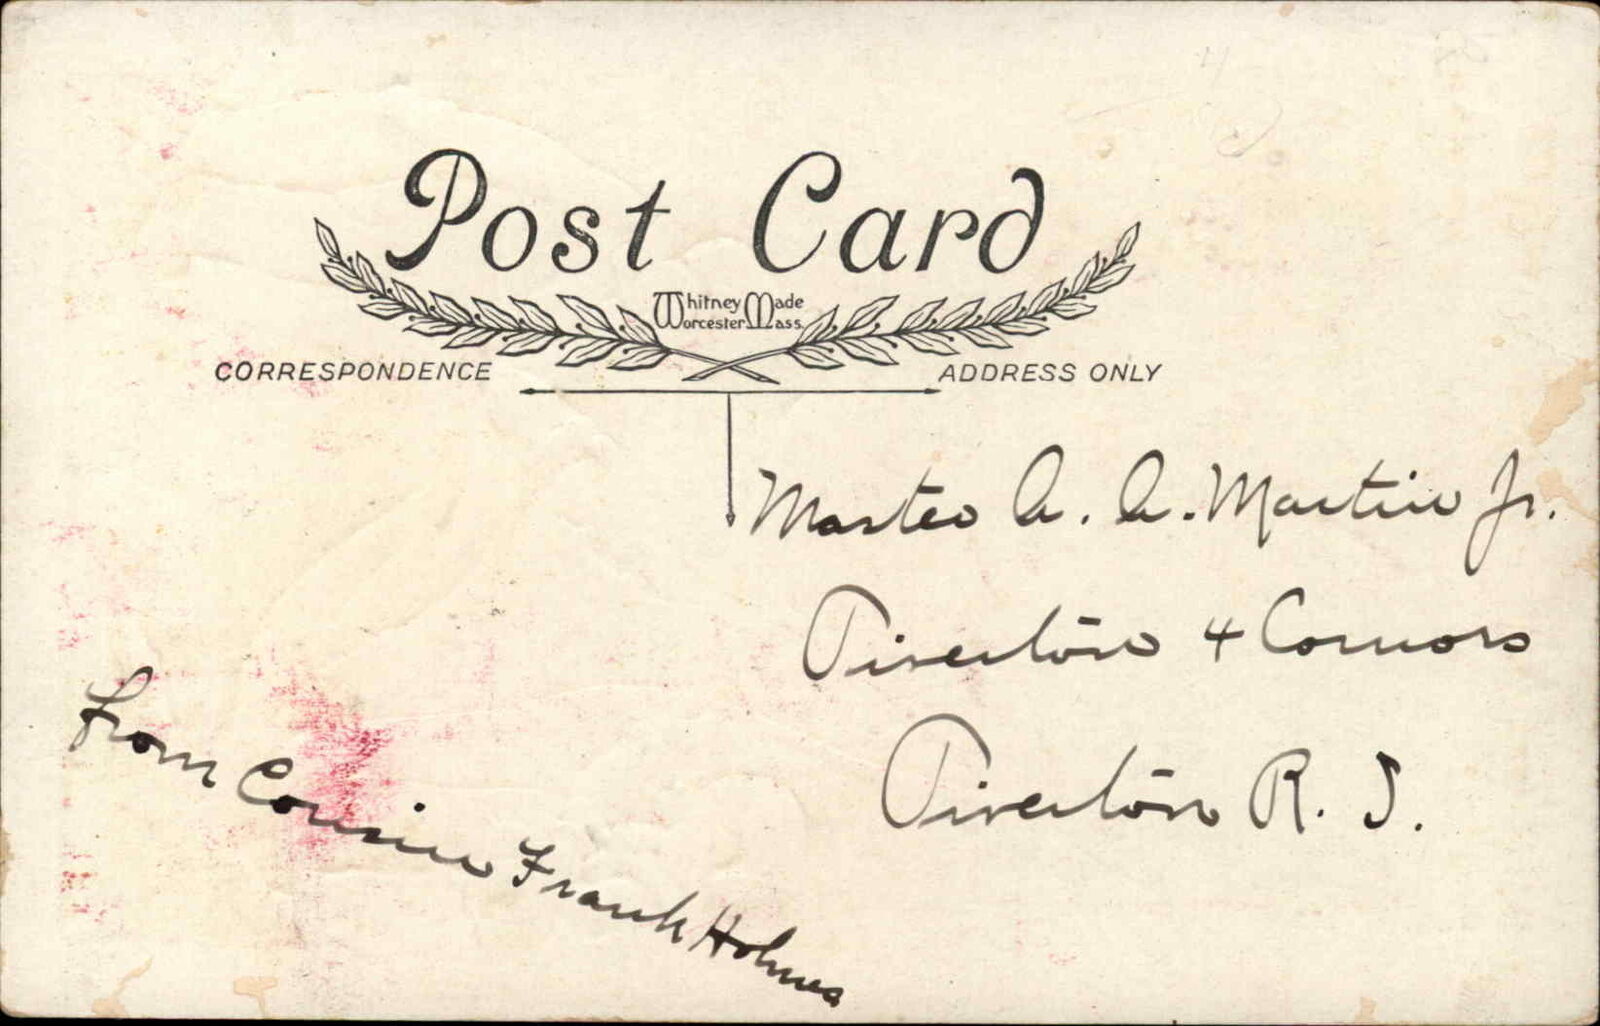 Post Card
Whitney Made
Worcester Mass.
CORRESPONDENCE
ADDRESS ONLY
Master A. A. Martin Jr.
Tiverton 4 Corners
Tiverton R. I.
from Cousin Frank Holmes